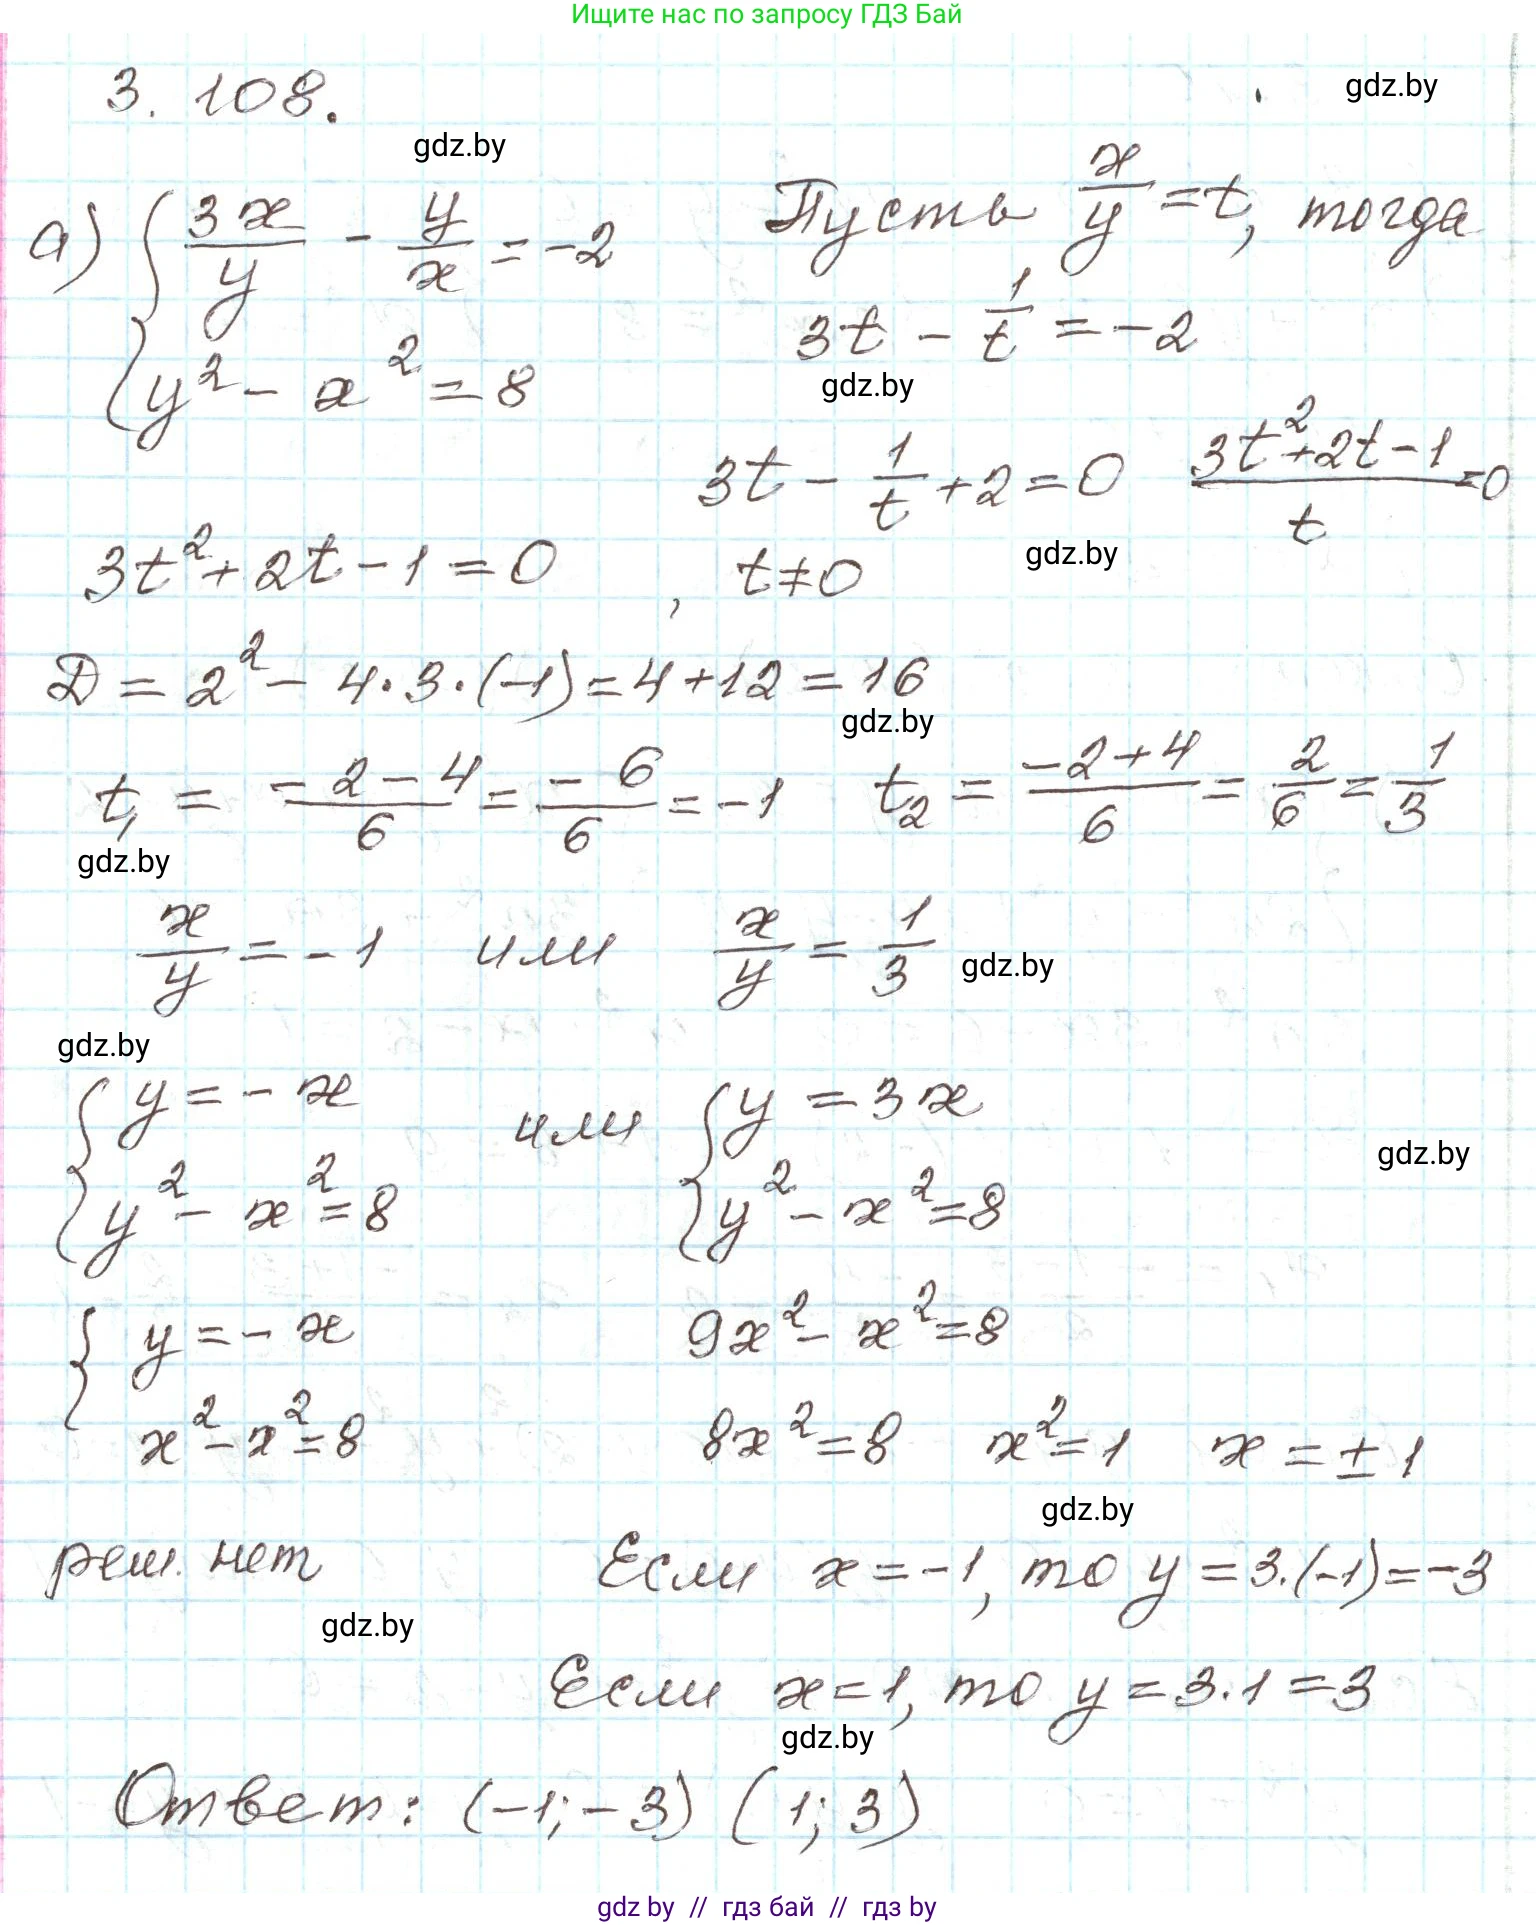 Ищите нас по запросу ГДЗ Бай
3. 108.
gdz.by
gdz.by
а) { 3x/y - y/x = -2
{ y² - x² = 8
Пусть x/y = t, тогда
3t - 1/t = -2
gdz.by
3t - 1/t + 2 = 0 (3t² + 2t - 1)/t = 0
3t² + 2t - 1 = 0, t ≠ 0
gdz.by
D = 2² - 4·3·(-1) = 4 + 12 = 16
gdz.by
t₁ = (-2 - 4)/6 = -6/6 = -1 t₂ = (-2 + 4)/6 = 2/6 = 1/3
gdz.by
x/y = -1 или x/y = 1/3
gdz.by
gdz.by
{ y = -x или { y = 3x
gdz.by
{ y² - x² = 8 { y² - x² = 8
{ y = -x 9x² - x² = 8
x² - x² = 8 8x² = 8 x² = 1 x = ±1
gdz.by
реш. нет Если x = -1, то y = 3·(-1) = -3
gdz.by
Если x = 1, то y = 3·1 = 3
gdz.by
Ответ: (-1; -3) (1; 3)
gdz by // гдз бай // гдз by